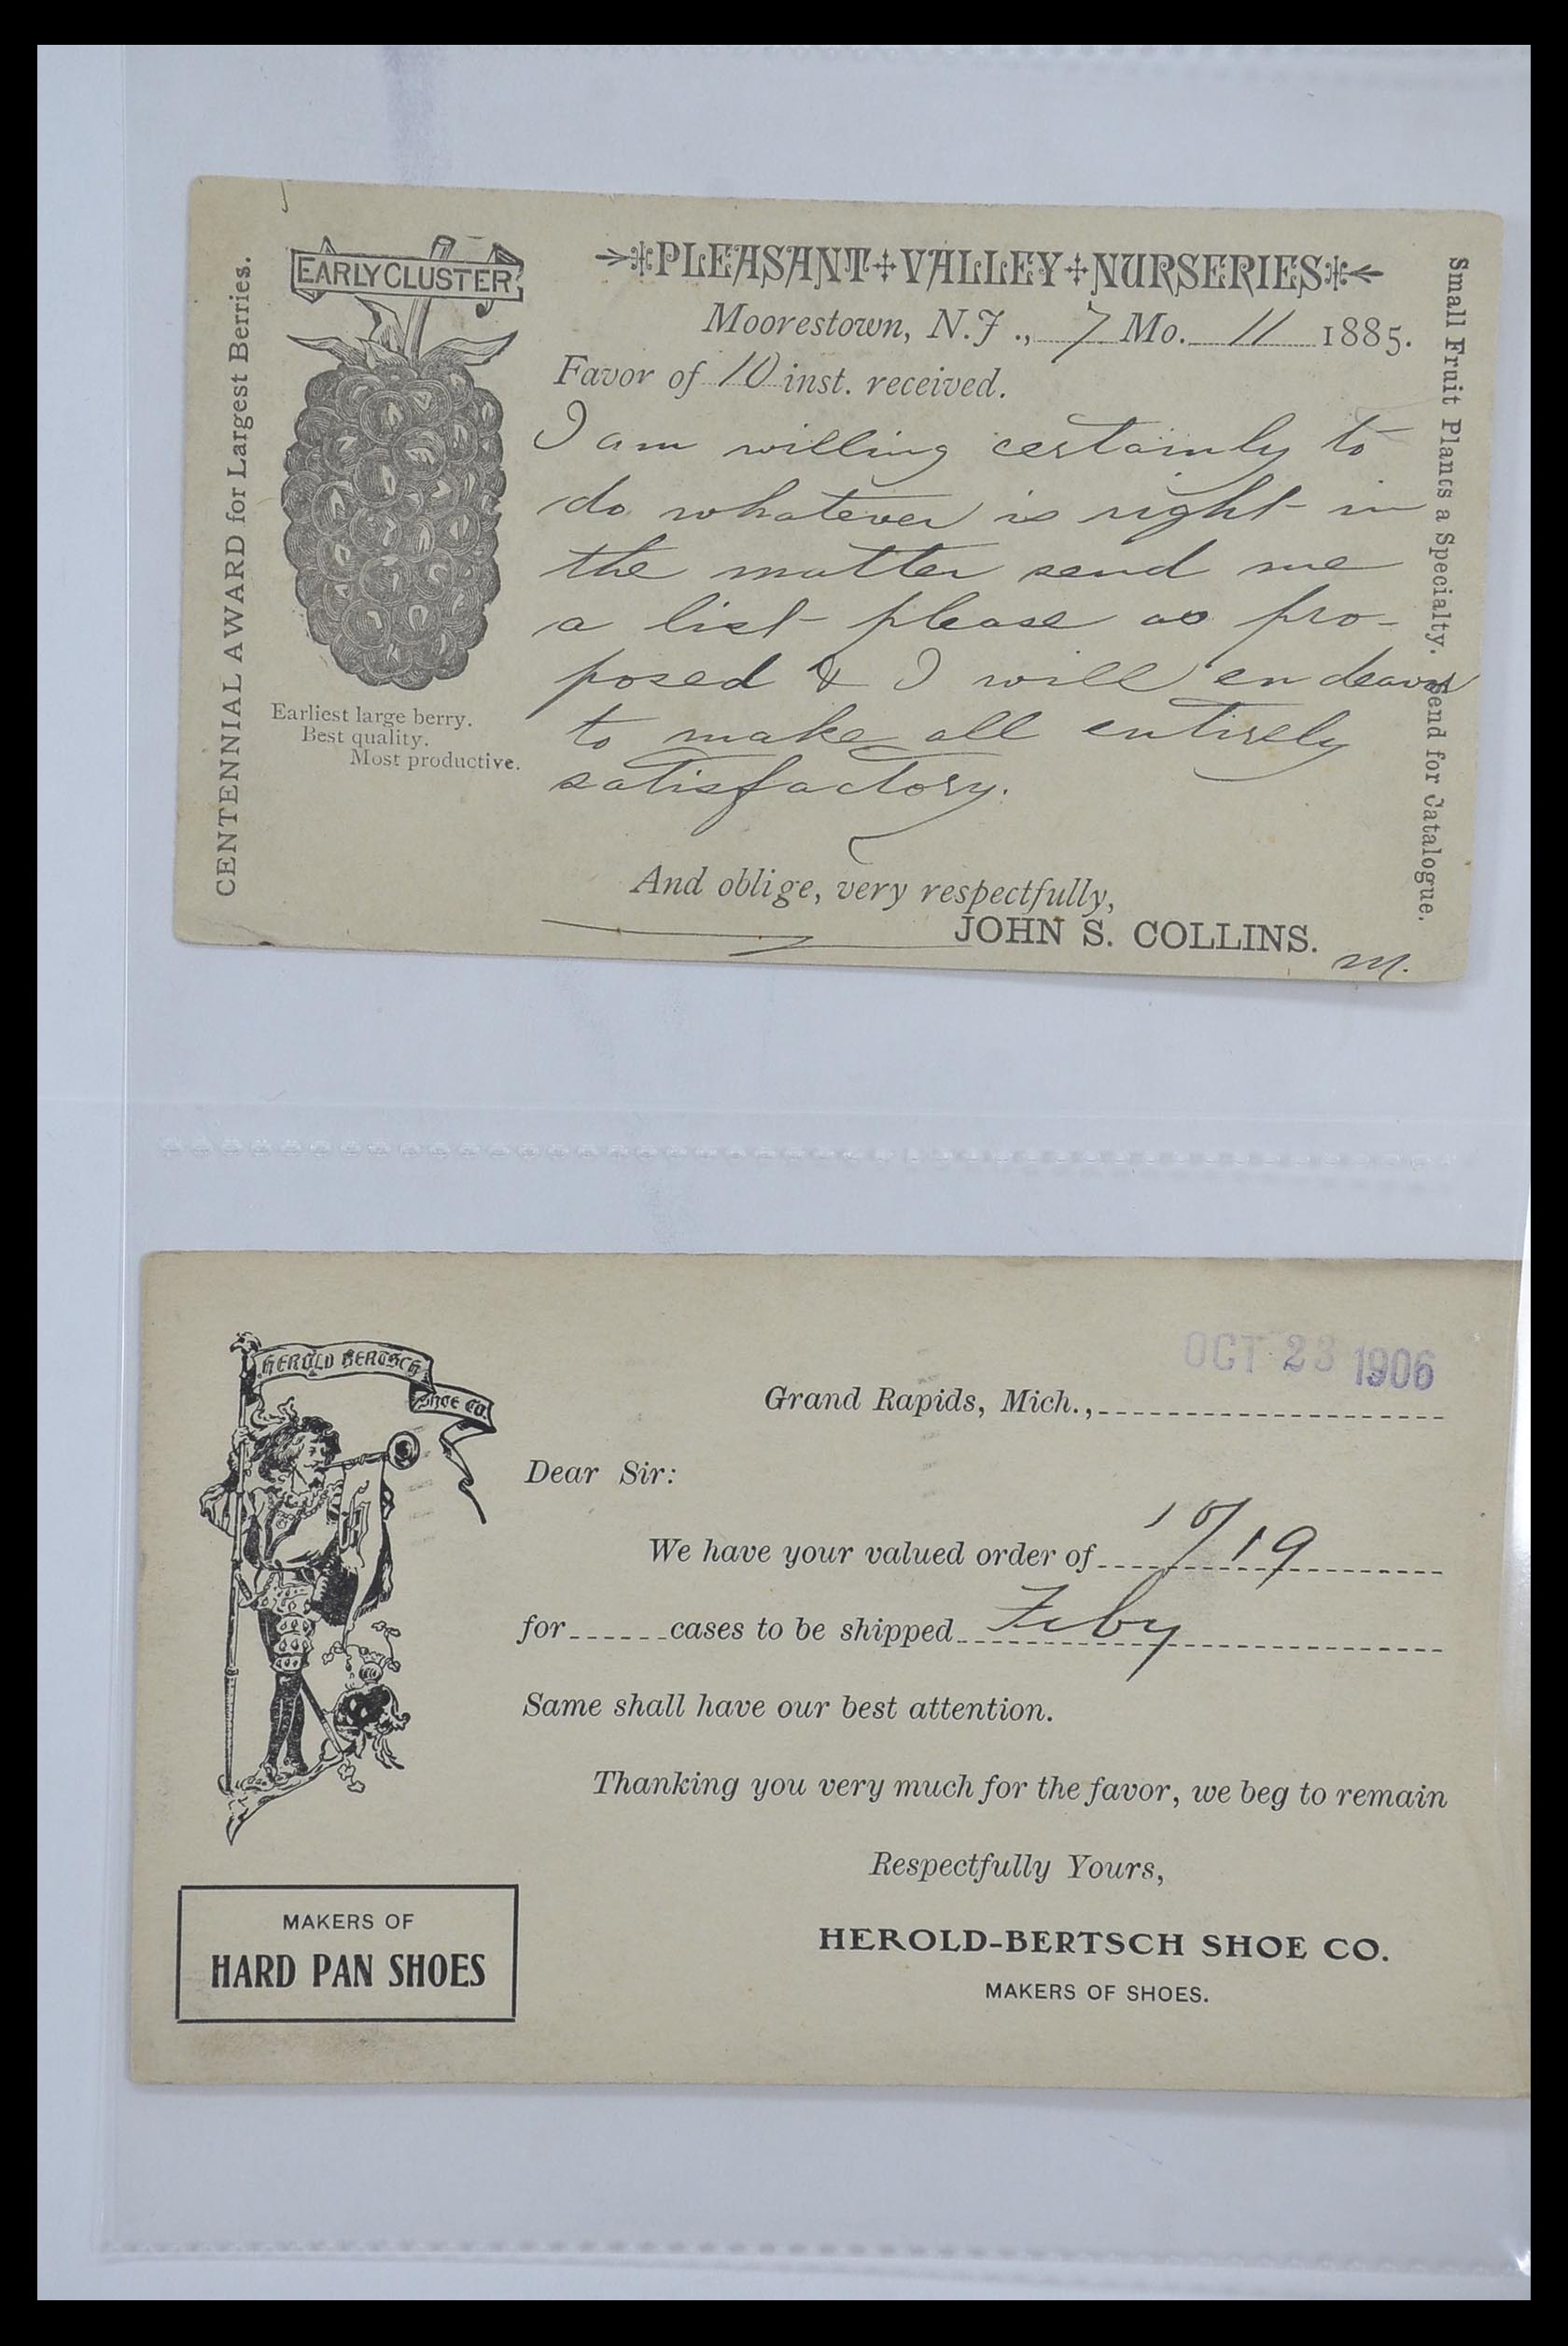 CENTENNIAL AWARD for Largest Berries.
EARLY CLUSTER
Earliest large berry.
Best quality.
Most productive.
PLEASANT VALLEY NURSERIES
Moorestown, N.J., 7 Mo. 11 1885.
Favor of 10 inst. received.
I am willing certainly to
do whatever is right in
the matter send me
a list please as pro-
posed & I will endeavor
to make all entirely
satisfactory.
And oblige, very respectfully,
JOHN S. COLLINS.
M.
Small Fruit Plants a Specialty. Send for Catalogue.
HEROLD BERTSCH
SHOE CO.
OCT 23 1906
Grand Rapids, Mich.,
Dear Sir:
We have your valued order of 10/19
for cases to be shipped Feby
Same shall have our best attention.
Thanking you very much for the favor, we beg to remain
Respectfully Yours,
HEROLD-BERTSCH SHOE CO.
MAKERS OF SHOES.
MAKERS OF
HARD PAN SHOES